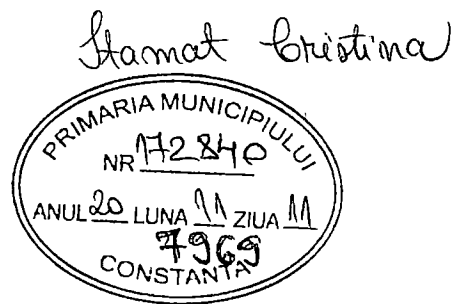 Stamat Cristina
PRIMARIA MUNICIPIULUI
NR 172840
ANUL 20 LUNA 11 ZIUA 11
7969
CONSTANTA